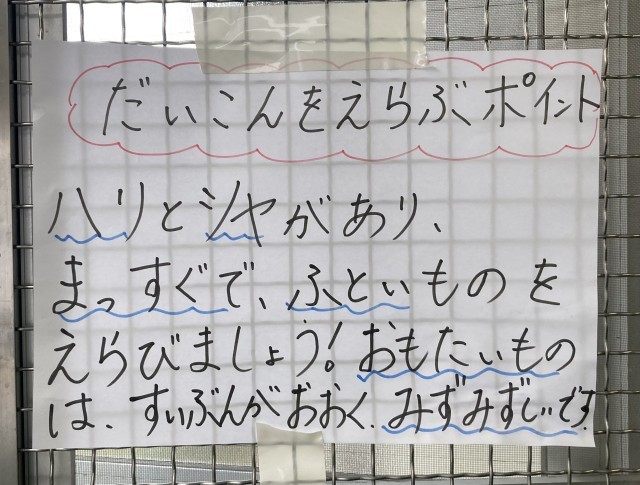 だいこんをえらぶポイント
ハリとシヤがあり、
まっすぐで、ふといものを
えらびましょう！おもたいもの
は、すいぶんがおおく、みずみずしいです。